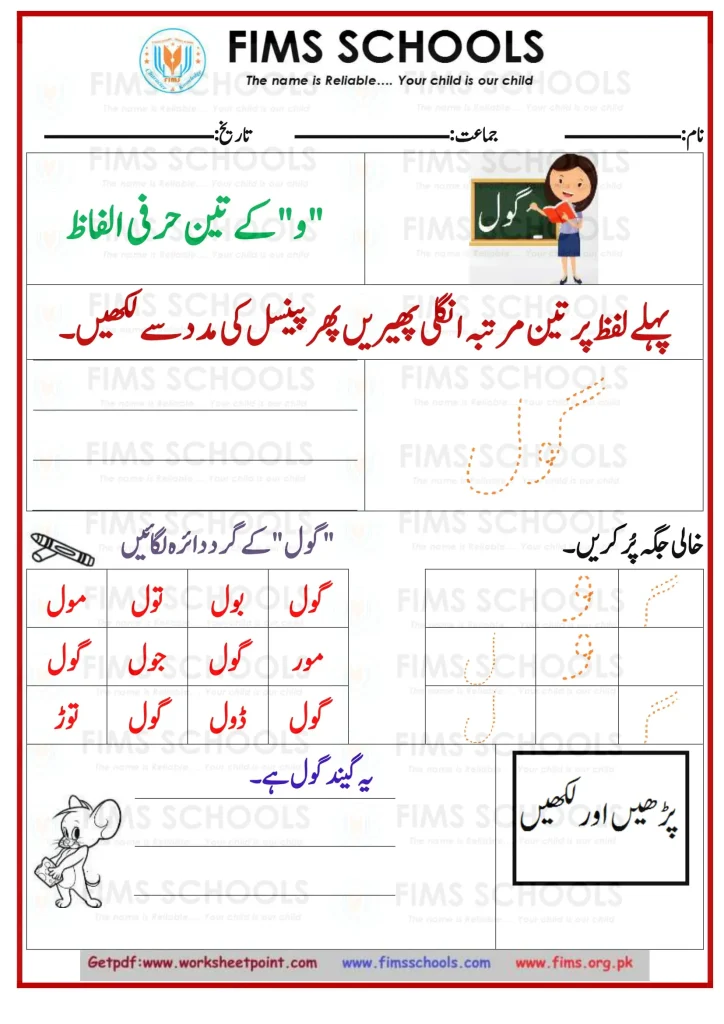 FIMS SCHOOLS
The name is Reliable.... Your child is our child
نام: جماعت: تاریخ:
گول
"و" کے تین حرفی الفاظ
پہلے لفظ پر تین مرتبہ انگلی پھیریں پھر پینسل کی مدد سے لکھیں۔
گول
خالی جگہ پُر کریں۔
گ و
و ل
گ ل
"گول" کے گرد دائرہ لگائیں
گول بول تول مول
مور گول جول گول
گول ڈول گول توڑ
پڑھیں اور لکھیں
یہ گیند گول ہے۔
Getpdf:www.worksheetpoint.com www.fimsschools.com www.fims.org.pk